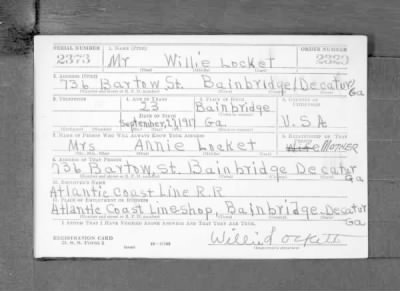 SERIAL NUMBER 1. NAME (Print) ORDER NUMBER
2373 Mr Willie Locket 2323
(First) (Middle) (Last)
2. ADDRESS (Print)
736 Bartow St. Bainbridge Decatur Ga
3. TELEPHONE 4. AGE IN YEARS 5. PLACE OF BIRTH 6. COUNTRY OF CITIZENSHIP
23 Bainbridge
DATE OF BIRTH
September, 1917 Ga. U.S.A
7. NAME OF PERSON WHO WILL ALWAYS KNOW YOUR ADDRESS 8. RELATIONSHIP OF THAT PERSON
Mrs Annie Locket Wife MOTHER
(Mr., Mrs., Miss) (First) (Middle) (Last)
9. ADDRESS OF THAT PERSON
736 Bartow, St. Bainbridge Decatur Ga
10. EMPLOYER'S NAME
Atlantic Coast Line R.R
11. PLACE OF EMPLOYMENT OR BUSINESS
Atlantic Coast Line shop, Bainbridge-Decatur Ga
I AFFIRM THAT I HAVE VERIFIED ABOVE ANSWERS AND THAT THEY ARE TRUE.
REGISTRATION CARD
D. S. S. FORM 1
(over)
Willie Lockett
(Registrant's signature)